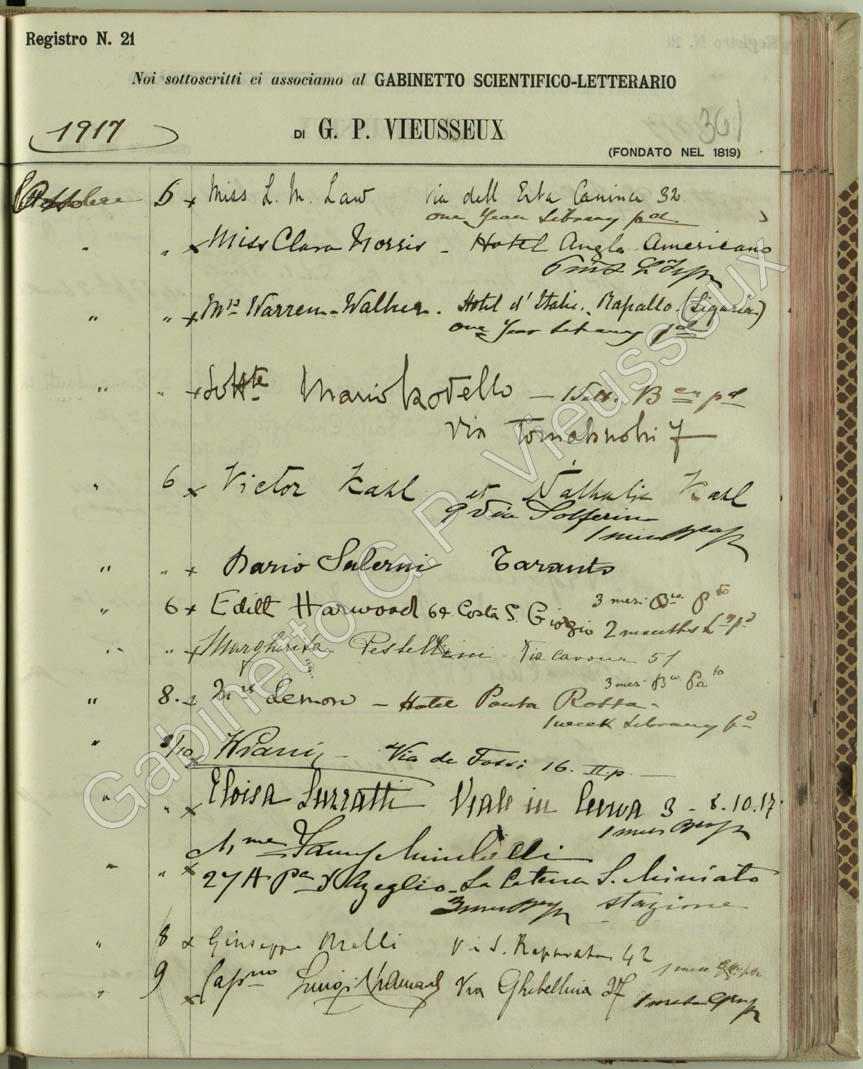 Registro N. 21
Noi sottoscritti ci associamo al GABINETTO SCIENTIFICO-LETTERARIO
1917
DI G. P. VIEUSSEUX
361
(FONDATO NEL 1819)
Ottobre 6 x Miss L. M. Law via dell Erta Canina 32
one Year Library pd
" " x Miss Clara Norris - Hotel Anglo Americano
" " x Mrs Warren-Walker. Hotel d'Italie. Rapallo (Liguria)
one Year Library pd
" " x Mario
Via 7
" 6 x Victor Kahl et Nathalie Kahl
9 Via Solferino
" " x Dario Salerni Taranto
3 mesi
" 6 x Edith Harwood 64 Costa S. Giorgio 2 months
" " x Margherita Pestellini Via Cavour 51
3 mesi
" 8 - Mrs Lemon - Hotel Porta Rossa -
1 week Library pd
" 8/10 x Via de Fossi 16. II p.
" " x Eloisa Luzzatti Viale in Curva 3 - 8.10.17.
" " x Mme Fanny
27A Pa d'Azeglio - La Catena S. Miniato
stazione
" 8 x Giuseppe Via S. Reparata 42
" 9 x Capno Luigi Via Ghibellina 37
Gabinetto G.P. Vieusseux